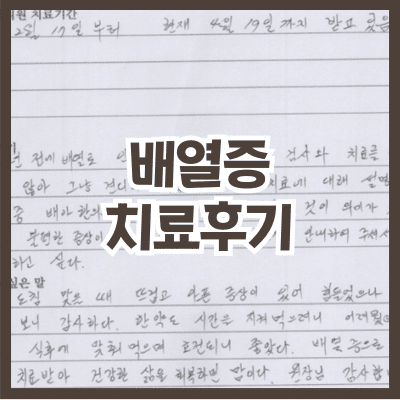 치료기간
17일 부터 현재 4월 19일 까지 받고 있음
전에 배열로 검사와 치료를
않아 그냥 치료에 대해 설명
중 배아한의 것이 의미가
불편한 증상이 안내하여 주셔서
하고 싶다.
배열증
치료후기
싶은 말
도침 맞을 때 뜨겁고 아픈 증상이 있어 힘들었으나
보니 감사하다. 한약도 시간을 지켜 먹으려니
식후에 맞춰 먹으며 호전되니 좋았다. 배열증으로
치료받아 건강한 삶을 회복하면 함이다. 원장님 감사합